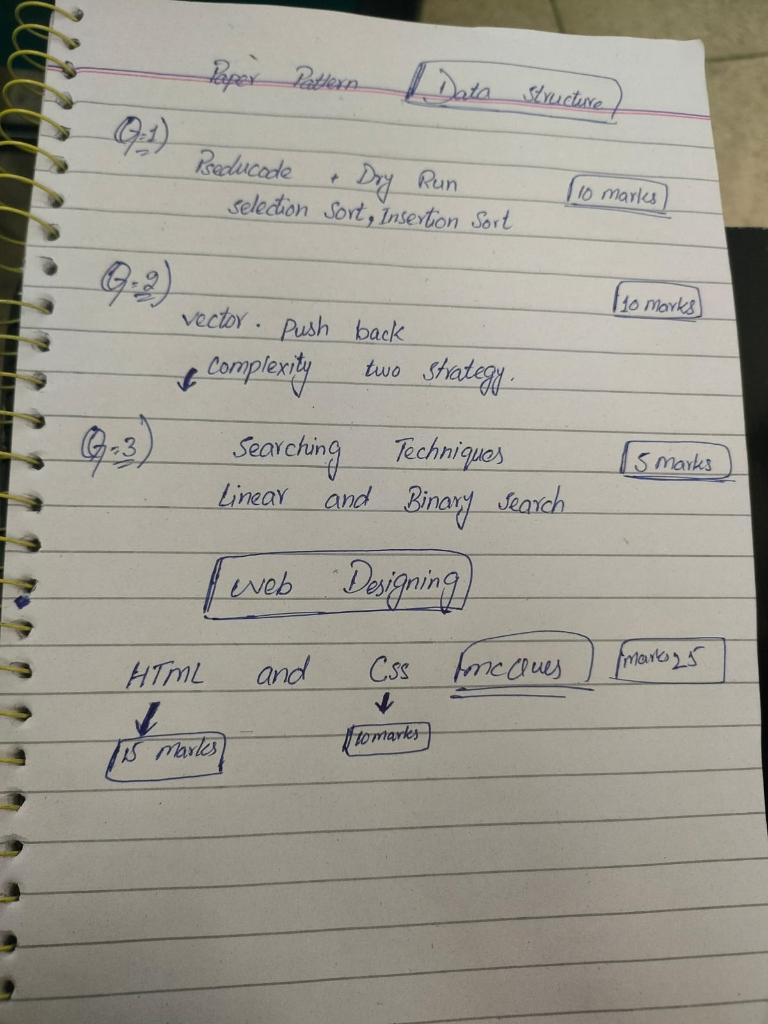 Paper Pattern Data Structure
Q:1)
Pseducode + Dry Run 10 marks
selection Sort, Insertion Sort
Q:2) 10 marks
vector. Push back
Complexity two strategy.
Q:3) Searching Techniques 5 marks
Linear and Binary search
Web Designing
HTML and Css mcques marks 25
15 marks 10 marks